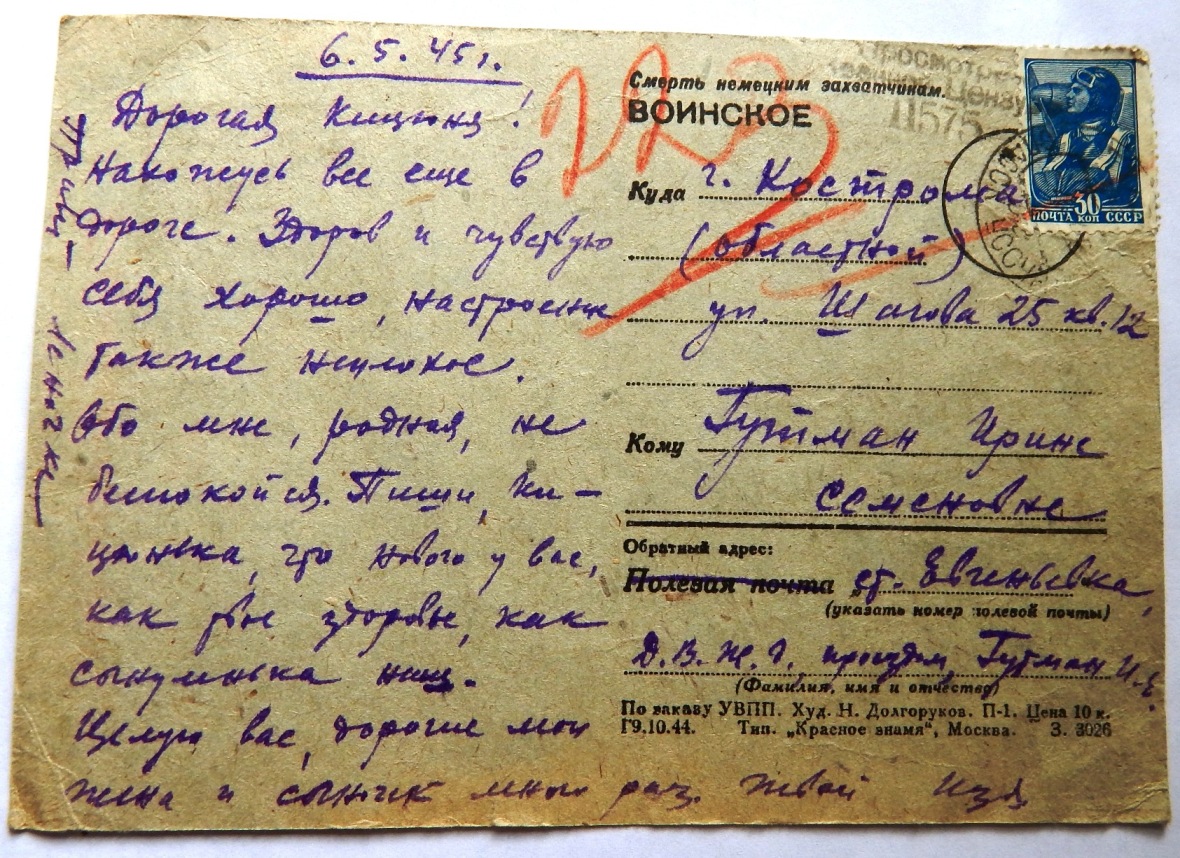 6.5.45 г.
Дорогая Кицюня!
Нахожусь все еще в
дороге. Здоров и чувствую
себя хорошо, настроение
также неплохое.
Обо мне, родная, не
беспокойся. Пиши, Ки-
цюнька, что нового у вас,
как твое здоровье, как
сынулинька наш.
Целую вас, дорогие мои
жена и сыночек много раз. Твой Изя
223
Смерть немецким захватчинам.
ВОИНСКОЕ
Просмотрено
Военной Цензурой
11575
ПОЧТА 30 КОП СССР
Куда г. Кострома
(областной)
ул. Шагова 25 кв. 12
Кому Гутман Ирине
Семеновне
Обратный адрес:
Полевая почта ст. Евгеньевка,
(указать номер полевой почты)
Д.В.Ж.Д. проездом, Гутман И.Я.
(Фамилия, имя и отчество)
По заказу УВПП. Худ. Н. Долгоруков. П-1. Цена 10 к.
Г9.10.44. Тип. „Красное знамя", Москва. З. 3026